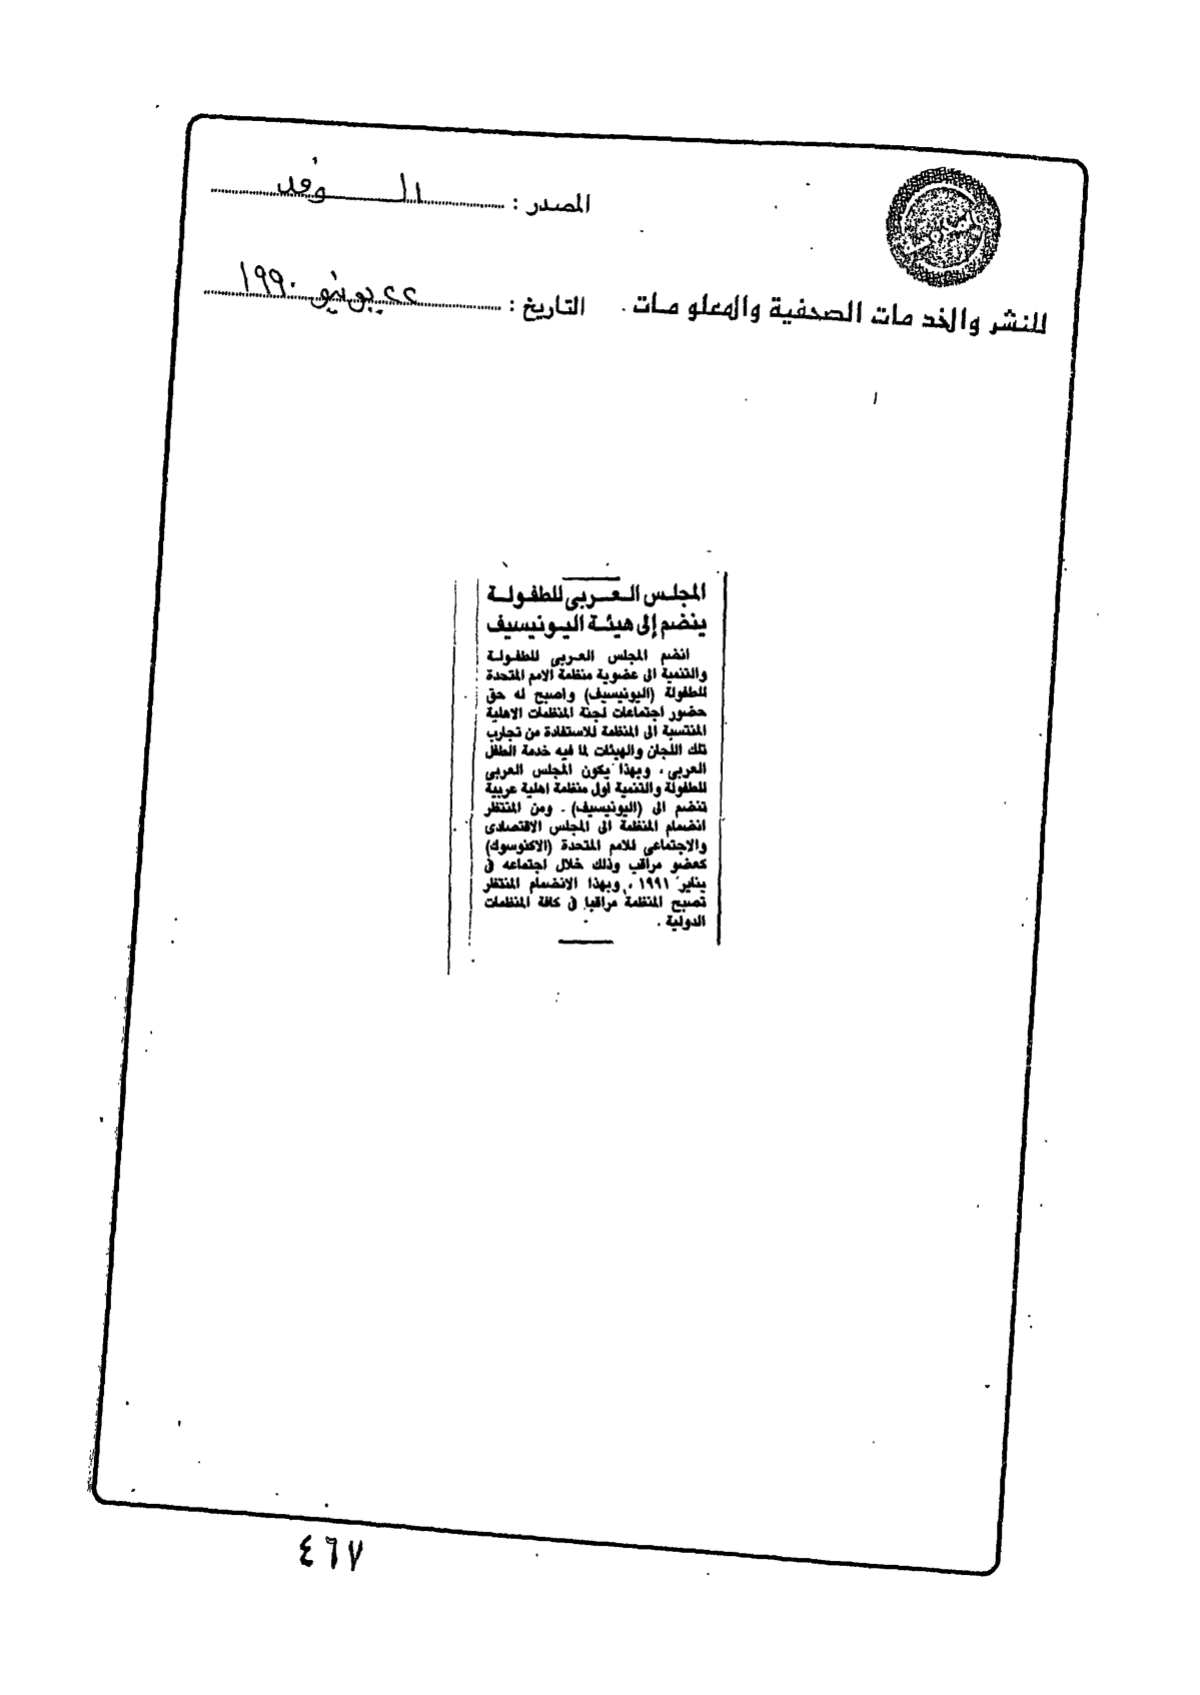 المصدر : الوفد
للنشر والخدمات الصحفية والمعلومات
التاريخ : ٢٢ يونيو ١٩٩٠
المجلس العربى للطفولة
ينضم إلى هيئة اليونيسيف
انضم المجلس العربى للطفولة
والتنمية الى عضوية منظمة الامم المتحدة
للطفولة (اليونيسيف) واصبح له حق
حضور اجتماعات لجنة المنظمات الاهلية
المنتسبة الى المنظمة للاستفادة من تجارب
تلك اللجان والهيئات لما فيه خدمة الطفل
العربى ، وبهذا يكون المجلس العربى
للطفولة والتنمية اول منظمة اهلية عربية
تنضم الى (اليونيسيف) . ومن المنتظر
انضمام المنظمة الى المجلس الاقتصادى
والاجتماعى للامم المتحدة (الاكنوسوك)
كعضو مراقب وذلك خلال اجتماعه فى
يناير ١٩٩١ ، وبهذا الانضمام المنتظر
تصبح المنظمة مراقبا فى كافة المنظمات
الدولية .
٤٦٧